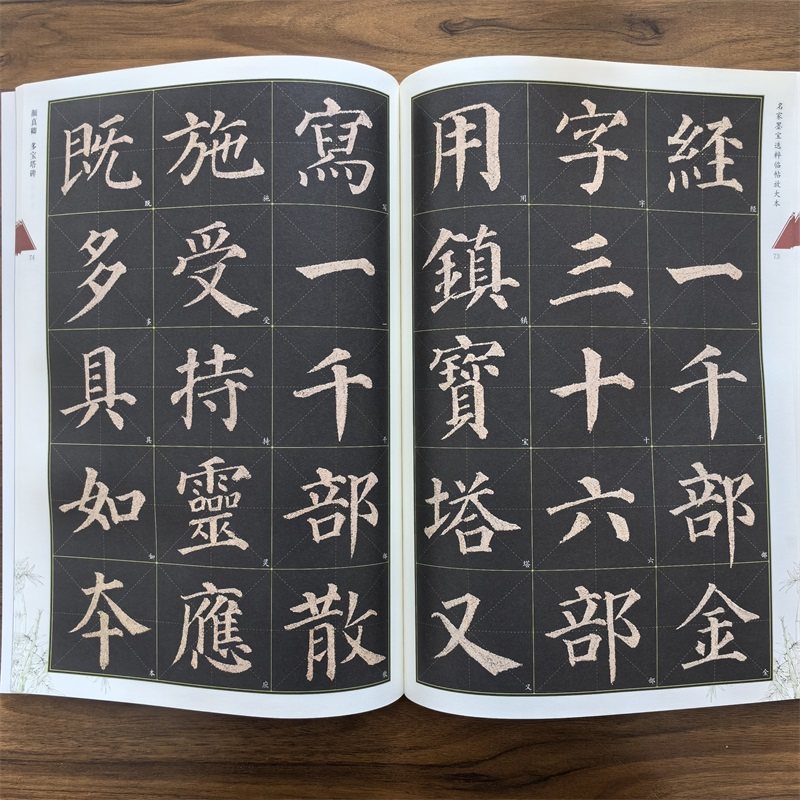 名家墨宝选粹临帖放大本
73
經一千部金
字三十六部
用鎮寶塔又
寫一千部散
施受持靈應
既多具如本
经一千部金
字三十六部
用镇宝塔又
写一千部散
施受持灵应
既多具如本
颜真卿 多宝塔碑
74